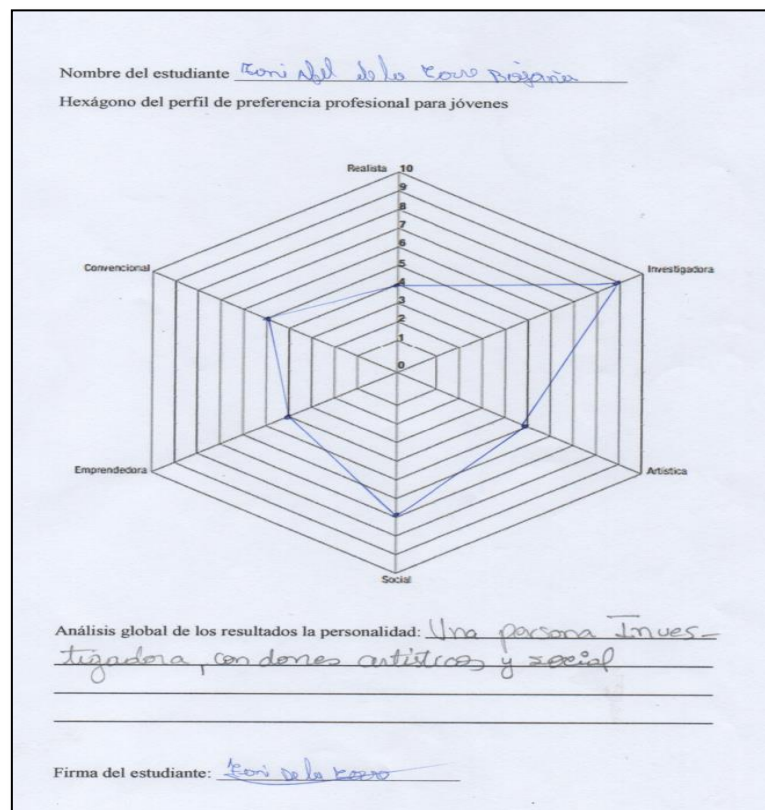 Nombre del estudiante Toni Abel de la Torre
Hexágono del perfil de preferencia profesional para jóvenes
Realista 10
9
8
7
6
5
4
3
2
1
0
Convencional
Investigadora
Emprendedora
Artística
Social
Análisis global de los resultados la personalidad: Una persona Inves-
tigadora, con dones artísticos y social
Firma del estudiante: Toni de la Torre